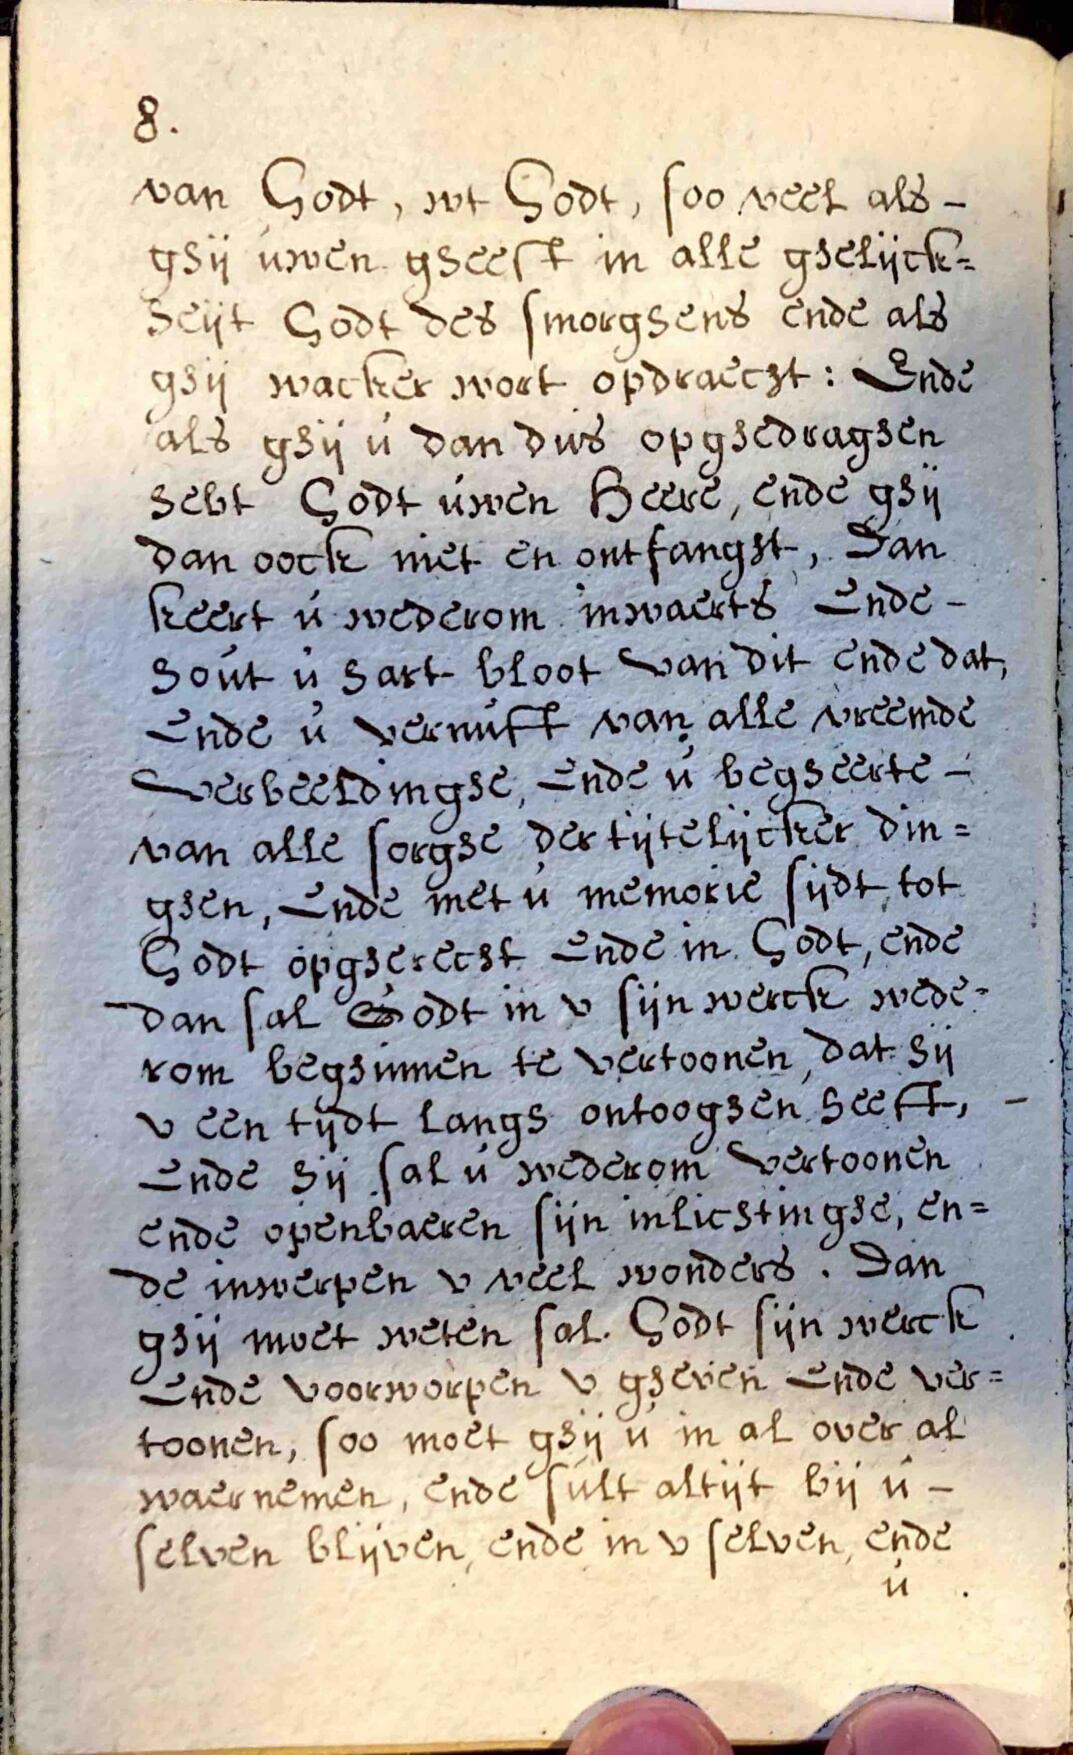 8.
van Godt, wt Godt, soo veel als –
ghij úwen gheest in alle ghelijck=
heijt Godt des smorghens ende als
ghij wacker wort opdraecht: Ende
als ghij ú dan dús opghedraghen
hebt Godt úwen Heere, ende ghij
dan oock niet en ontfanght, Dan
keert ú wederom inwaerts Ende –
hoút ú hart bloot van dit ende dat,
Ende ú vernúft van alle vreemde
verbeeldinghe, Ende ú begheerte –
van alle sorghe der tijtelijcker din=
ghen, Ende met ú memorie sijdt tot
Godt opgherecht Ende in Godt, ende
dan sal Godt in v sijn werck wede=
rom beghinnen te vertoonen, dat hij
v een tijdt langh ontooghen heeft, –
Ende hij sal ú wederom vertoonen
ende openbaeren sijn inlichtinghe, en=
de inwerpen v veel wonders. Dan
ghij moet weten sal Godt sijn werck
Ende voorworpen v gheven Ende ver=
toonen, soo moet ghij ú in al over al
waernemen, ende súlt altijt bij ú –
selven blijven, ende in v selven, ende
ú